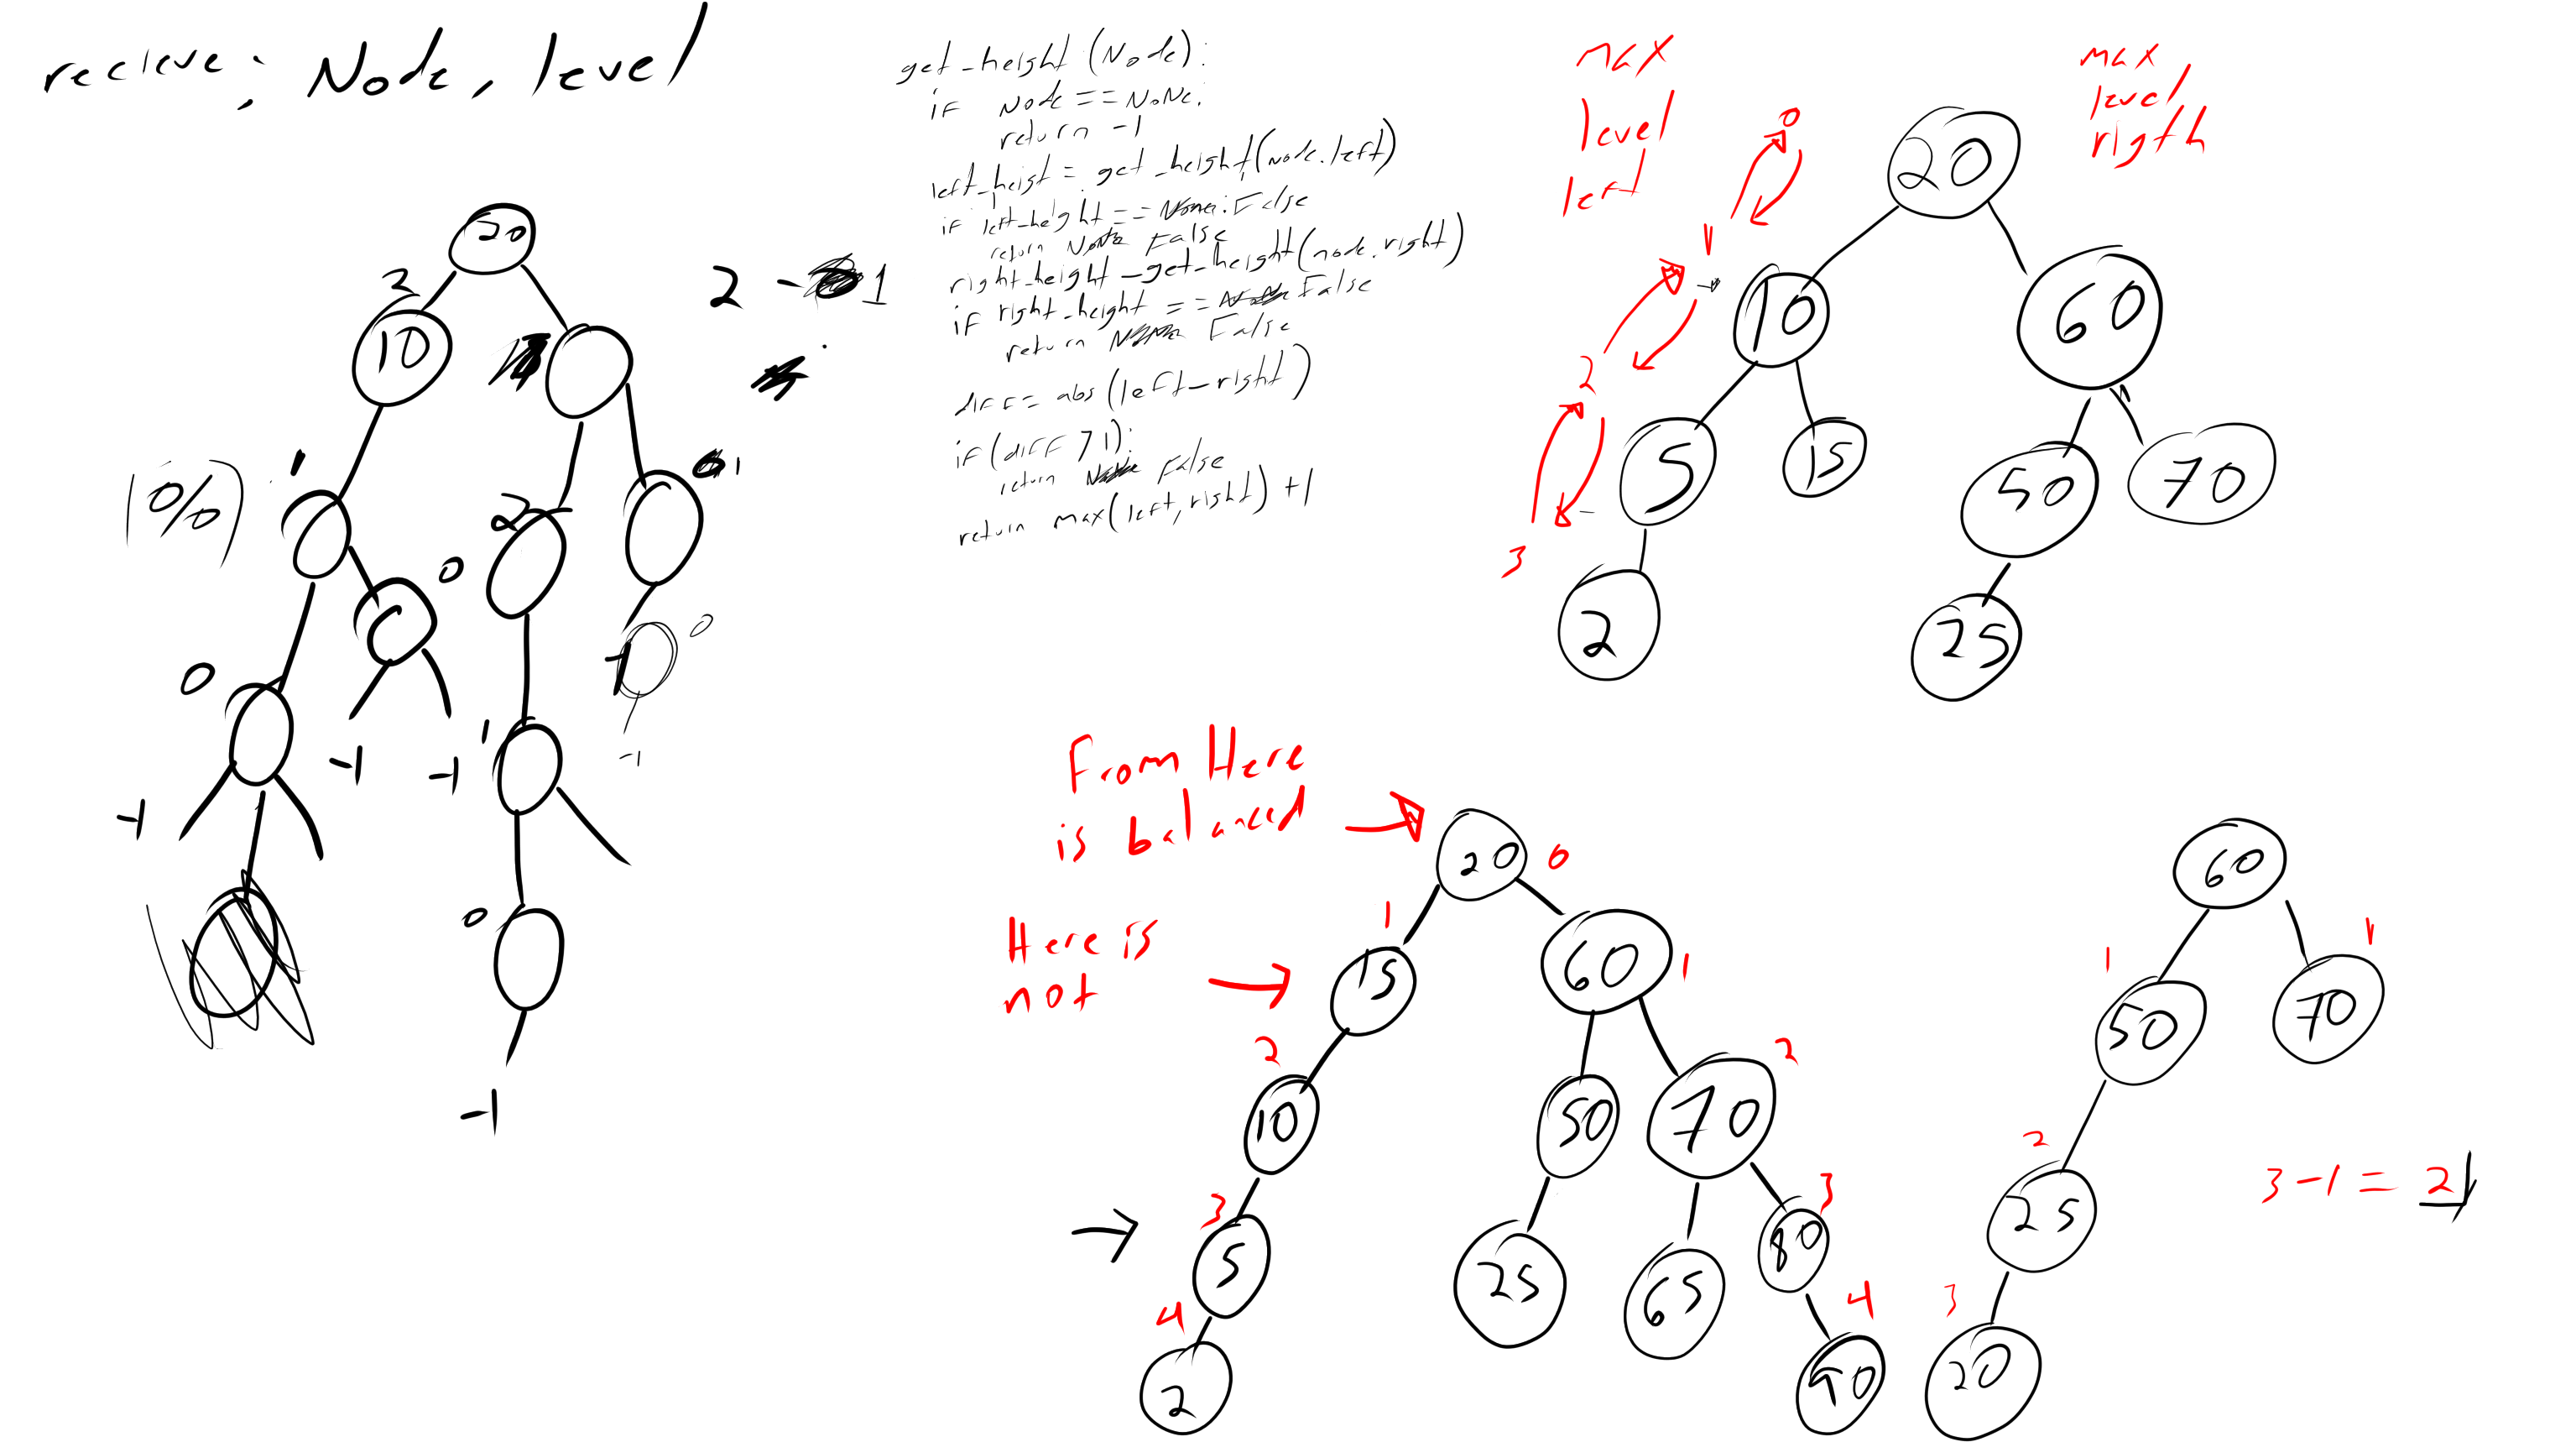 recieve: Node, level
20
2
10
2 - 1
1
2
1
0
0
0
-1
-1
-1
-1
0
-1
get_height (Node):
if Node == NoNe:
return -1
left_heigt = get_height(node.left)
if left_height == False
return False
right_height - get_height(node.right)
if right_height == False
return False
diff = abs(left-right)
if (diff > 1):
return False
return max(left, right) + 1
max
level
left
max
level
rigth
0
1
2
3
20
10
60
5
15
50
70
2
25
From Here
is balanced
Here is
not
20
0
1
15
60
1
2
10
50
70
2
3
5
25
65
80
3
4
2
90
4
60
1
1
50
70
2
25
3
20
3-1 = 2